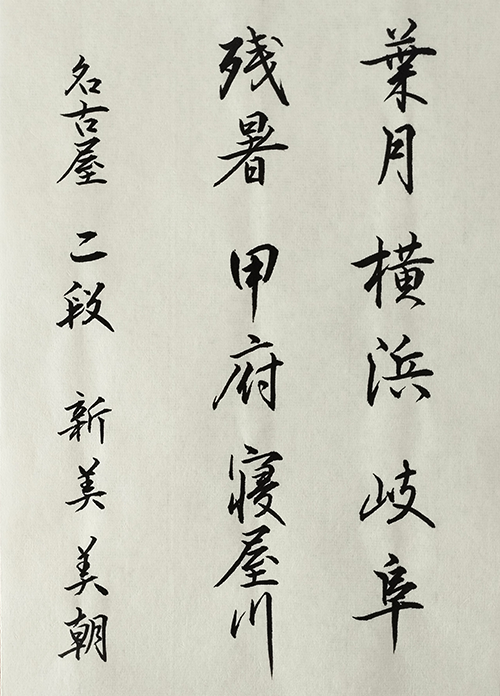 葉月 横浜 岐阜
残暑 甲府 寝屋川
名古屋 二段 新美 美朝